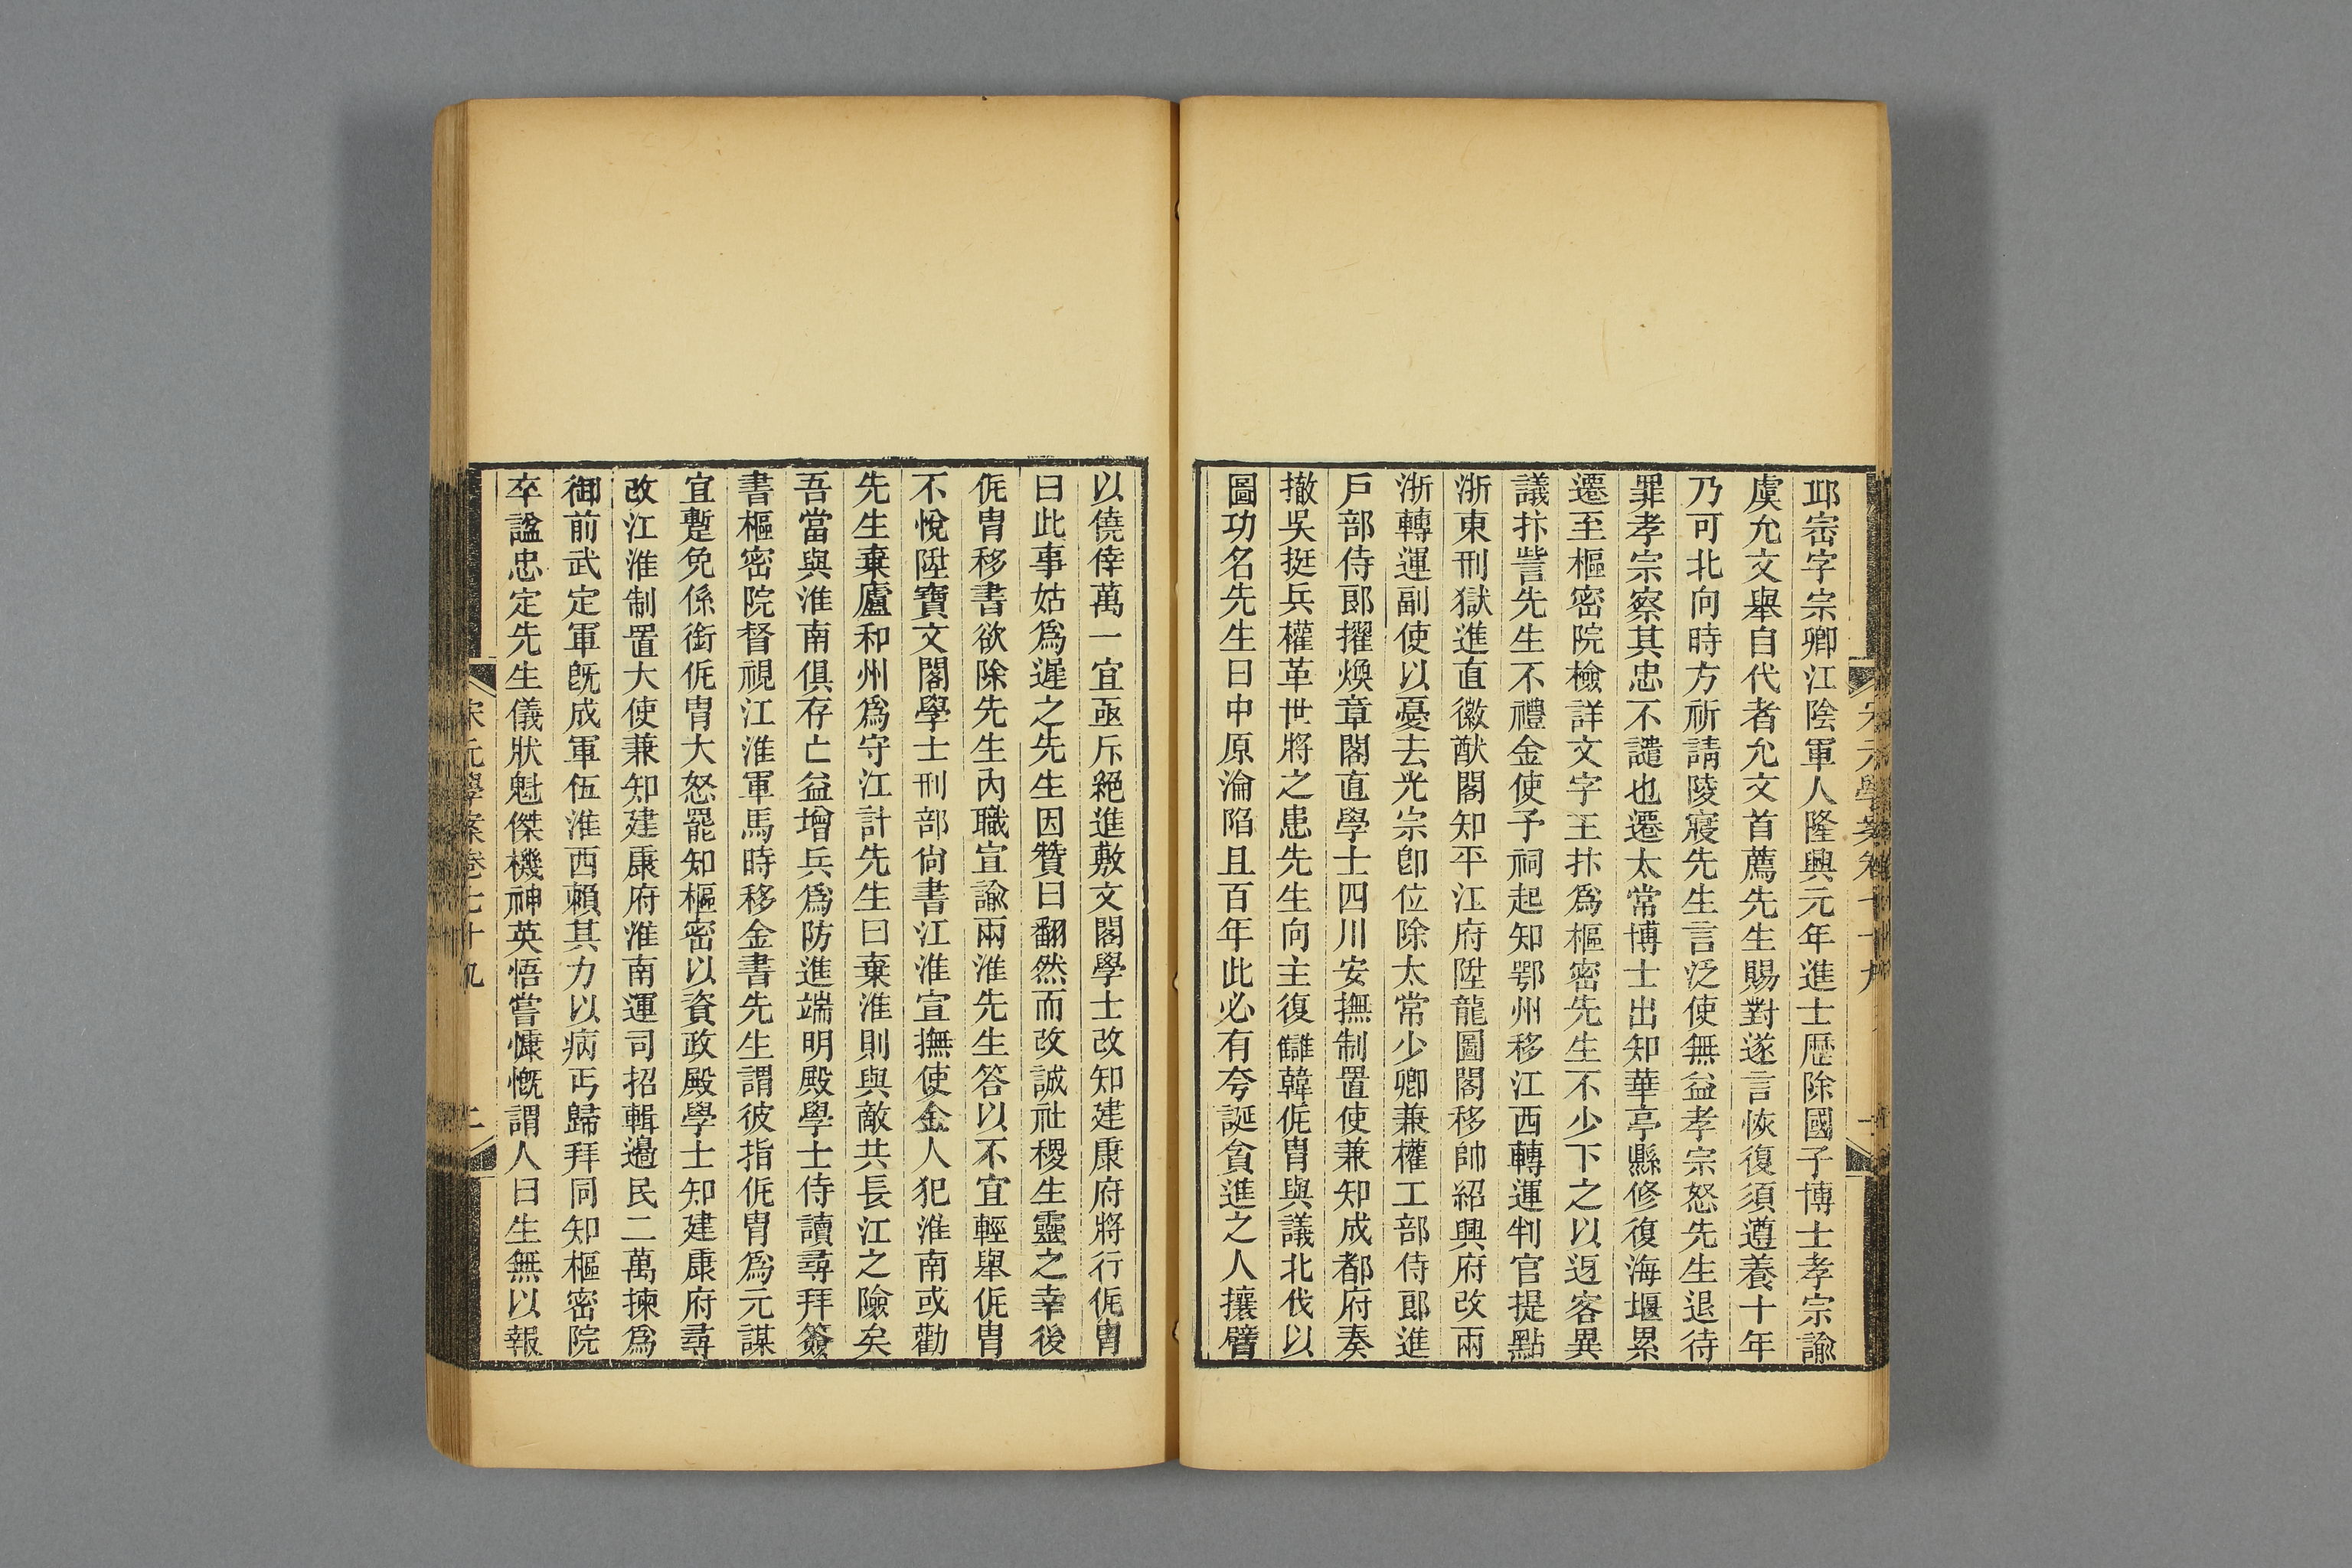 邱崈字宗卿江陰軍人隆興元年進士歴除國子博士孝宗諭
虞允文舉自代者允文首薦先生賜對遂言恢復須遵養十年
乃可北向時方祈請陵寢先生言泛使無益孝宗怒先生退待
罪孝宗察其忠不譴也遷太常博士出知華亭縣修復海堰累
遷至樞密院檢詳文字王抃爲樞密先生不少下之以迓客異
議抃訾先生不禮金使予祠起知鄂州移江西轉運判官提點
浙東刑獄進直徽猷閣知平江府陞龍圖閣移帥紹興府改兩
浙轉運副使以憂去光宗卽位除太常少卿兼權工部侍郎進
戶部侍郎擢煥章閣直學士四川安撫制置使兼知成都府奏
撤吳挺兵權革世將之患先生向主復讎韓侂冑與議北伐以
圖功名先生曰中原淪陷且百年此必有夸誕貪進之人攘臂
以僥倖萬一宜亟斥絕進敷文閣學士改知建康府將行侂冑
曰此事姑爲遲之先生因贊曰翻然而改誠社稷生靈之幸後
侂冑移書欲除先生內職宣諭兩淮先生答以不宜輕舉侂冑
不悅陞寶文閣學士刑部尙書江淮宣撫使金人犯淮南或勸
先生棄廬和州爲守江計先生曰棄淮則與敵共長江之險矣
吾當與淮南俱存亡益增兵爲防進端明殿學士侍讀尋拜簽
書樞密院督視江淮軍馬時移金書先生謂彼指侂冑爲元謀
宜蹔免係銜侂冑大怒罷知樞密以資政殿學士知建康府尋
改江淮制置大使兼知建康府淮南運司招輯邊民二萬揀爲
御前武定軍旣成軍伍淮西賴其力以病丐歸拜同知樞密院
卒諡忠定先生儀狀魁傑機神英悟嘗慷慨謂人曰生無以報
宋元學案卷七十九
二